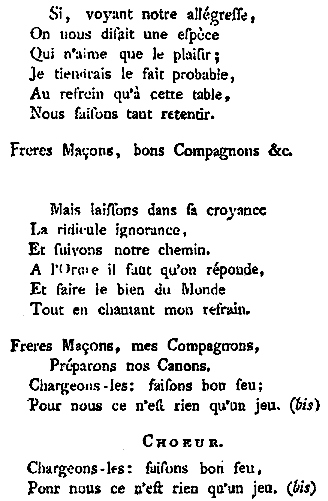 Si, voyant notre allégreſſe,
On nous diſait une eſpèce
Qui n'aime que le plaiſir;
Je tiendrais le fait probable,
Au refrein qu'à cette table,
Nous faiſons tant retentir.
Freres Maçons, bons Compagnons &c.
Mais laiſſons dans ſa croyance
La ridicule ignorance,
Et ſuivons notre chemin.
A l'Orme il faut qu'on réponde,
Et faire le bien du Monde
Tout en chantant mon refrain.
Freres Maçons, mes Compagnons,
Préparons nos Canons.
Chargeons-les: faiſons bon feu;
Pour nous ce n'eſt rien qu'un jeu. (bis)
CHOEUR.
Chargeons-les: faiſons bon feu,
Pour nous ce n'eſt rien qu'un jeu. (bis)